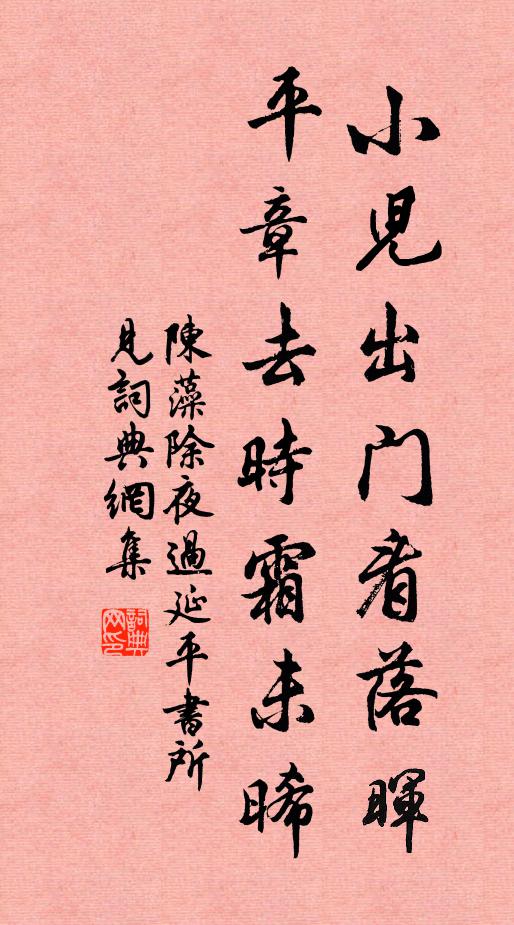 小児出门看落暉
平章去時霜未晞
陳藻除夜過延平書所
見詞典網集
詞典网印